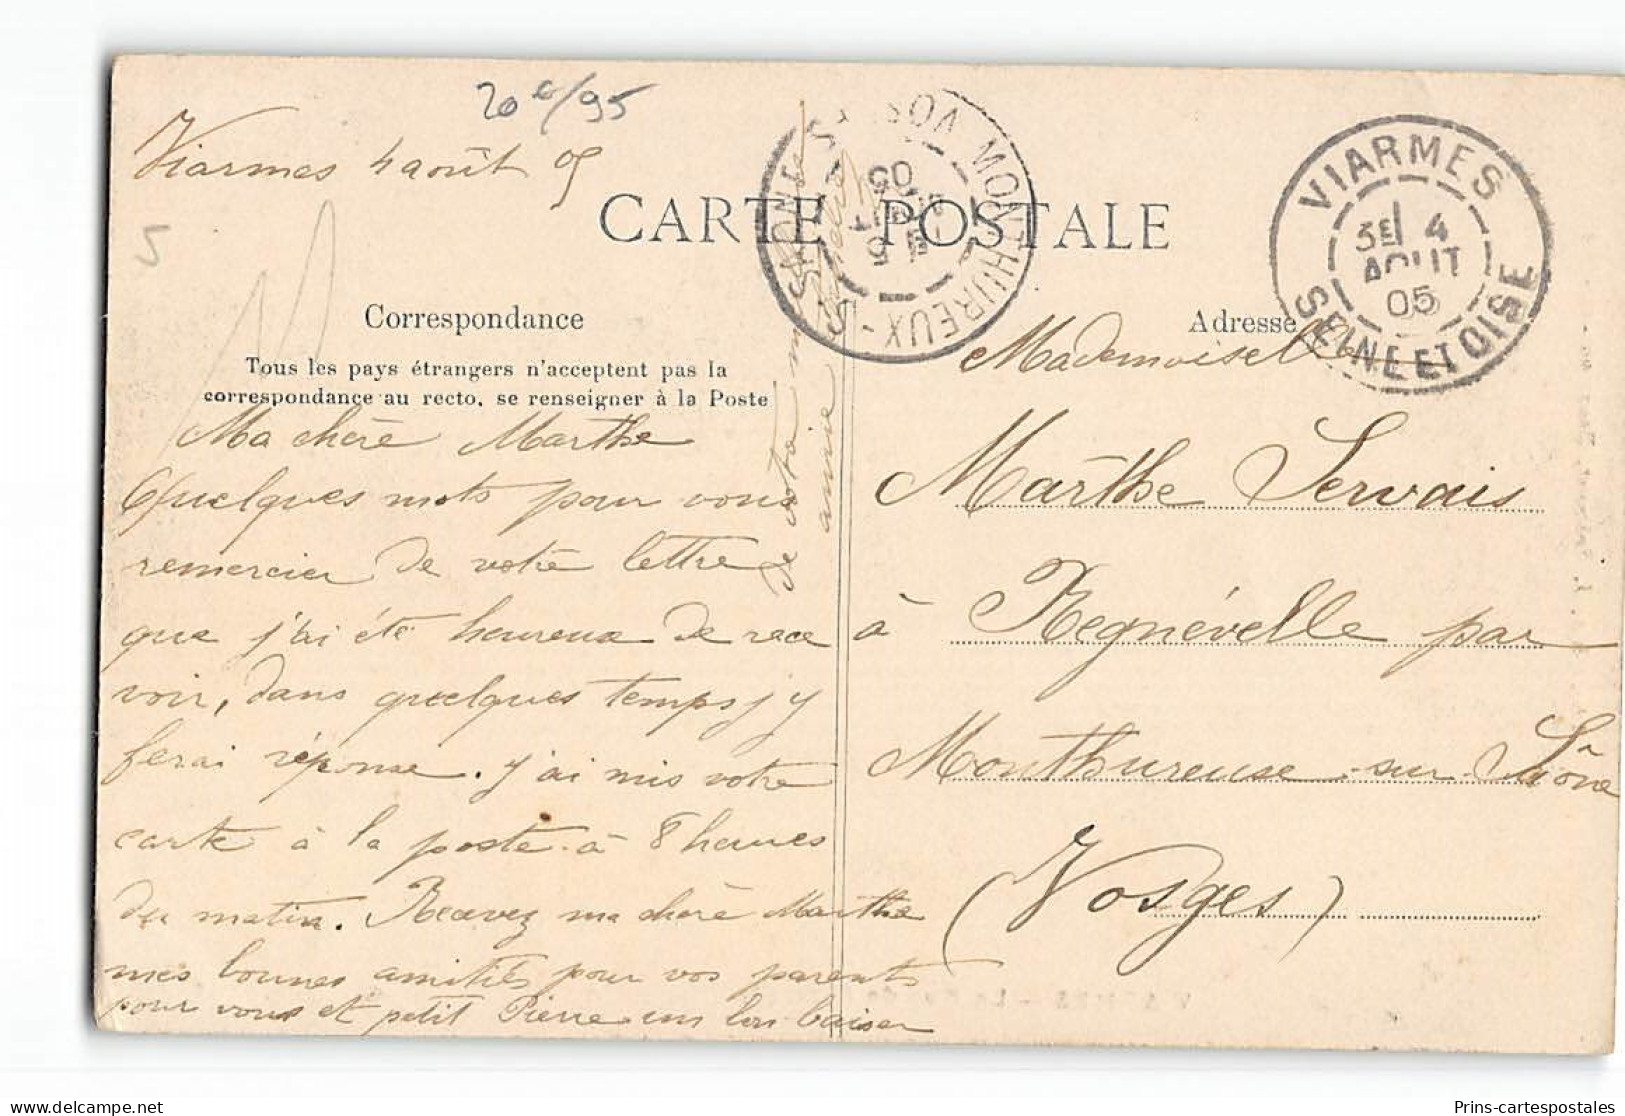 20 €/95
Viarmes 4 août 05
5
CARTE POSTALE
VIARMES
3E 4
AOUT
05
SEINE ET OISE
MONTHUREUX-S-SAONE
VOSGES
5
AOUT
05
Correspondance
Adresse
Tous les pays étrangers n'acceptent pas la
correspondance au recto, se renseigner à la Poste
Ma chère Marthe
Quelques mots pour vous
remercier de votre lettre
que j'ai été heureuse de rece
voir, dans quelques temps j'y
ferai réponse. J'ai mis votre
carte à la poste à 8 heures
du matin. Recevez ma chère Marthe
mes bonnes amitiés pour vos parents
pour vous et petit Pierre un bon baiser
de votre
amie
Mademoiselle
Marthe Servais
à Regnévelle par
Monthureuse-sur-Saône
(Vosges)
Prins-cartespostales
delcampe.net